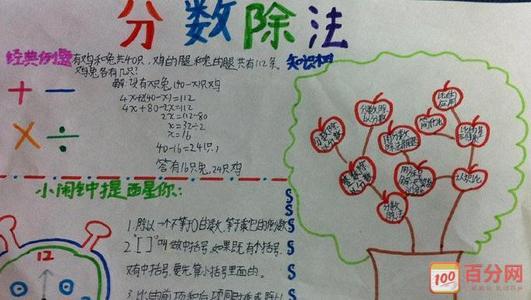 分数除法
经典例题
有鸡和兔共40只,鸡的腿和兔的腿共有112条,
鸡兔各有几只?
解:设有X只兔,(40-X)只鸡
4X+2(40-X)=112
4X+80-2X=112
2X=112-80
X=32÷2
X=16
40-16=24(只)
答:有16只兔,24只鸡
+ -
× ÷
知识树
比的应用
认识比
分数除法
小闹钟提醒你:
12
1.除以一个不等于0的数,等于乘它的倒数
2."[ ]"叫做中括号,如果既有小括号,
又有中括号,要先算小括号里面的。
3.比的前项和后项同时乘或除以
100
百分网